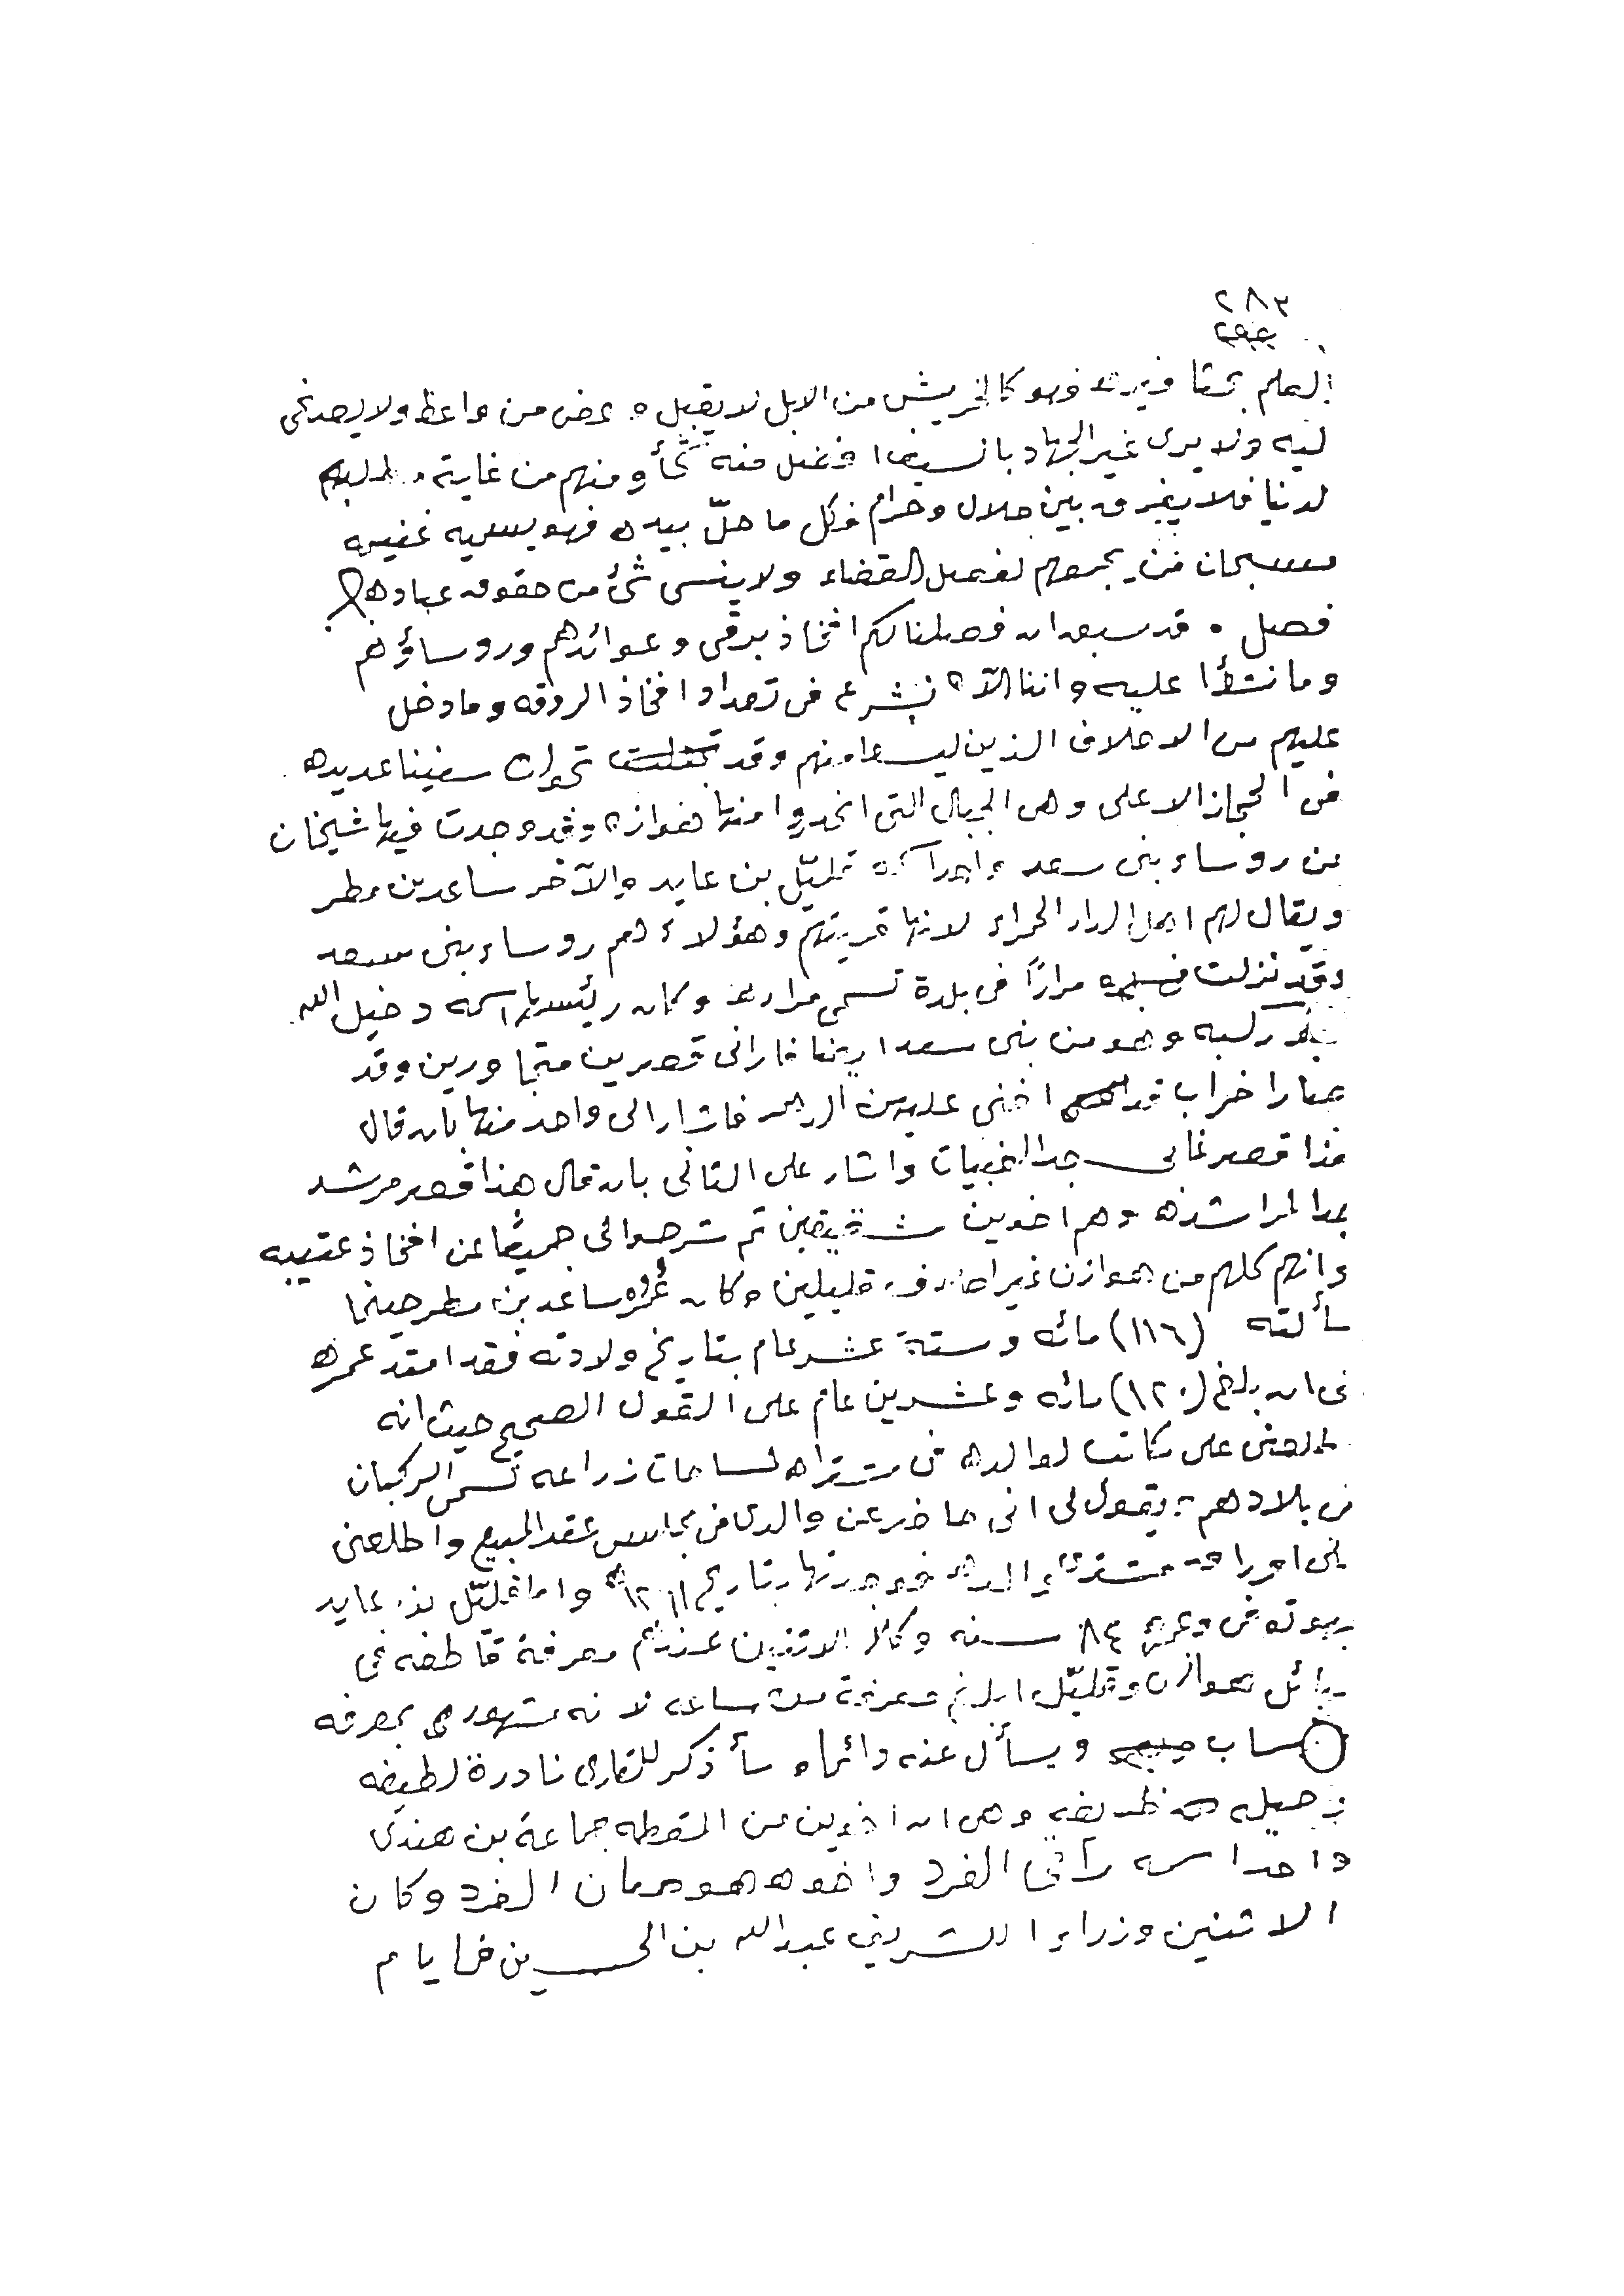 ٢٨٣
العلم بحثا فيره فهو كالخريش من الابل لا يقبل وعض من واعظ ولا يصدغى
ليه ولا يرى غير الجهاد بالسيف ومنهم من غاية مطلبهم
لدنيا فلا يفرق بين حلال وحرام فكل ما حلّ بيده فهو يسميه غنيمه
فسبحان من يجمعهم لفصل القضاء ولا ينسى شئ من حقوق عباده
فصل . قد سبق ان فصلنا لكم افخاذ برقى وعوائدهم وروساؤهم
وما نشأ عليه واننا الآن نشرع في تعداد افخاذ الروقه وما دخل
عليهم من الاحلاف الذين ليسوا منهم وقد تجولت سنينا عديده
في الحجاز الاعلى وهي الجبال التي انحدروا منها هوازن وقد وجدت فيها شيخان
من روساء بني سعد واحدا اسمه قليّل بن عايد والآخر ساعد بن مطر
ويقال لهم اهل الدار الحمراء لانها قريتهم وهؤلاء هم روساء بني سعد
وقد نزلت مرارًا في بلدة تسمى وكان رئيسها اسمه دخيل الله
وهو من بني سعد ايضا فاراني قصرين متجاورين وقد
صارا خراب قد اخنى عليهن الدهر فاشار الى واحد منها بان قال
هذا قصر غانى جد الغبيات واشار على الثاني بان قال هذا قصر مرشد
جد المراشده وهم اخوين شقيقين ثم شرحوا لي جميعًا عن افخاذ عتيبه
وانهم كلهم من هوازن غير احلاف قليلين وكان عمره ساعد بن مطر حينما
سألته (١١٦) مائه وستة عشر عام بتاريخ ولادته فقد امتد عمره
لى ان بلغ (١٢٠) مائه وعشرين عام على القول الصحيح حيث انه
طلعنى على مكاتب لوالده في مشتراه لمساحات زراعه تسمى الركبان
في بلادهم يقول لي انى حاضر عن والدى في مجلس عقد المبيع واطلعنى
لى اوراق مشترى والده فوجدتها بتاريخ واما قليّل بن عايد
يوته في وعمره ٨٤ سنه وكان الاثنين عندهم معرفة قاطعه في
بائل هوازن وقليّل ابلغ معرفة من ساعد لانه مشهور في معرفه
ساب ويسأل عنه دائما . سأذكر للقارى نادرة لطيفه
جميله ظريفه وهي ان اخوين من المقطه جماعة بن هندى
واحدا اسمه راقى الفرد واخوه هو الفرد وكان
الاثنين وزراء الشريف عبدالله بن الحسين في ايام